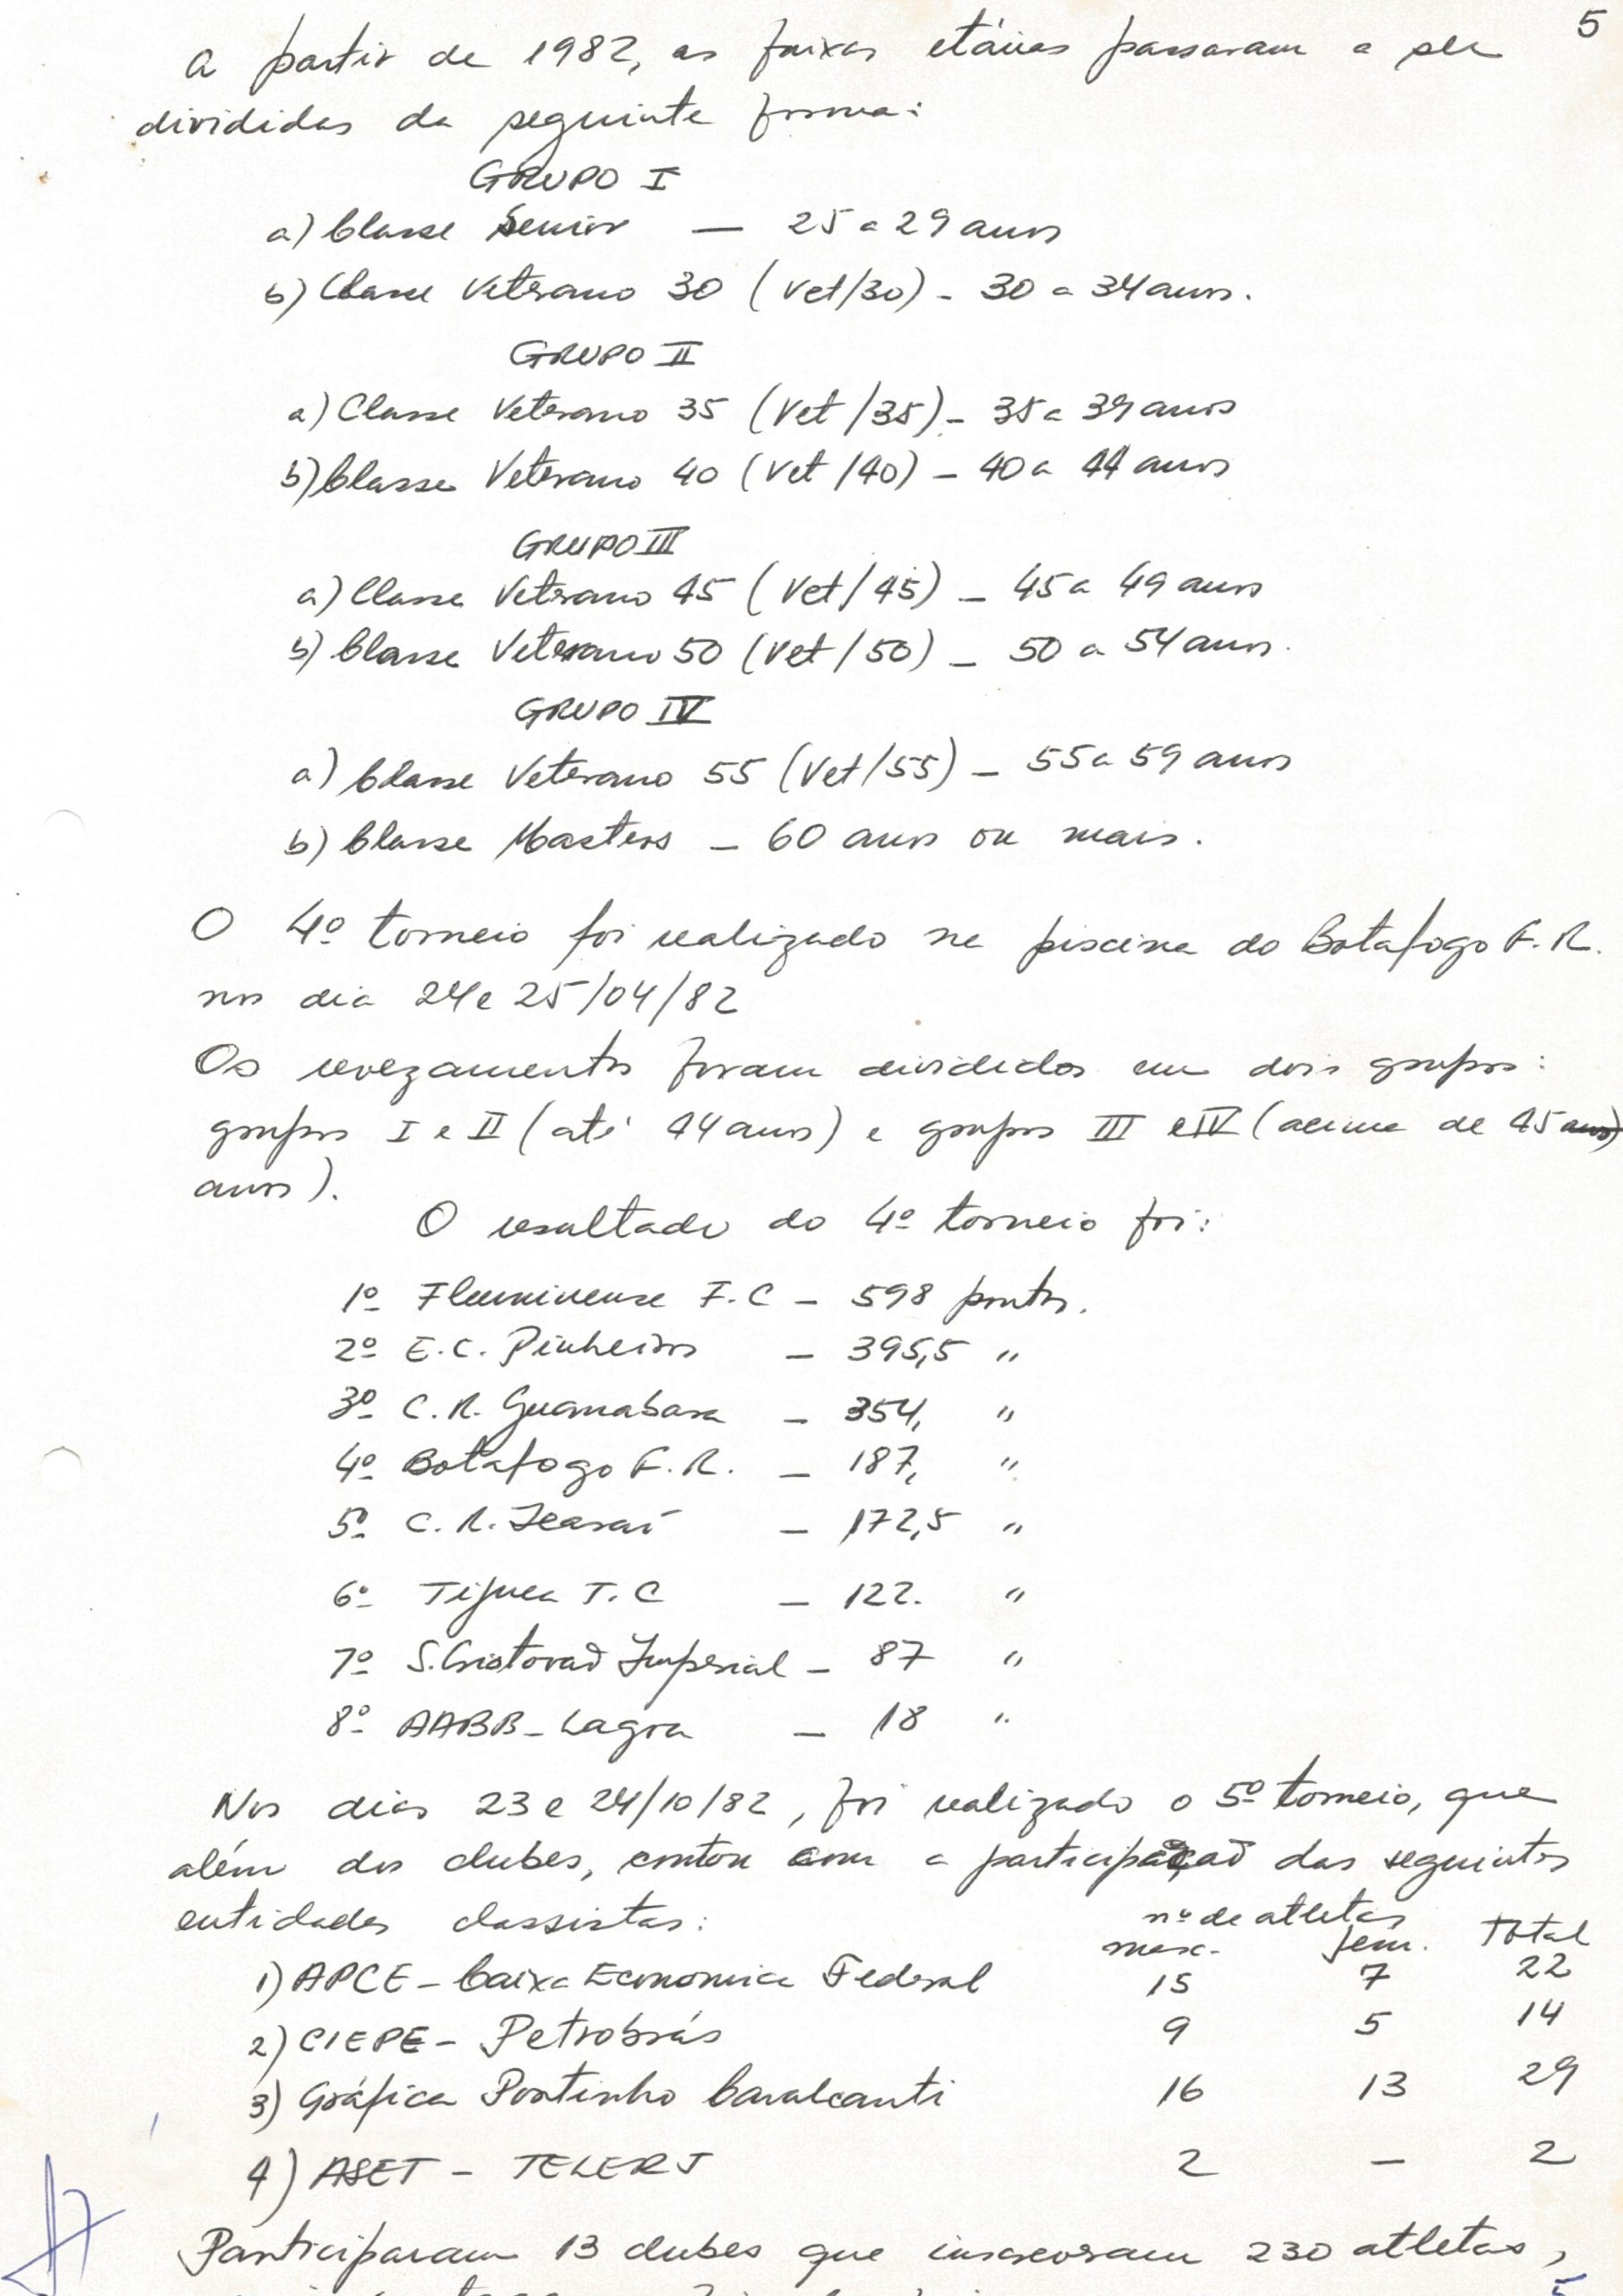 5
A partir de 1982, as faixas etárias passaram a ser
divididas da seguinte forma:
GRUPO I
a) Classe Senior — 25 a 29 anos
b) Classe Veterano 30 (Vet/30) - 30 a 34 anos.
GRUPO II
a) Classe Veterano 35 (Vet/35) - 35 a 39 anos
b) Classe Veterano 40 (Vet/40) - 40 a 44 anos
GRUPO III
a) Classe Veterano 45 (Vet/45) - 45 a 49 anos
b) Classe Veterano 50 (Vet/50) - 50 a 54 anos.
GRUPO IV
a) Classe Veterano 55 (Vet/55) - 55 a 59 anos
b) Classe Masters - 60 anos ou mais.
O 4º torneio foi realizado na piscina do Botafogo F.R.
nos dia 24 e 25/04/82
Os revezamentos foram divididos em dois grupos:
grupos I e II (até 44 anos) e grupos III e IV (acima de 45 anos)
anos).
O resultado do 4º torneio foi:
1º Fluminense F.C - 598 pontos.
2º E.C. Pinheiros - 395,5 "
3º C.R. Guanabara - 354, "
4º Botafogo F.R. - 187, "
5º C.R. Icaraí - 172,5 "
6º Tijuca T.C - 122. "
7º S. Cristovão Imperial - 87 "
8º AABB - Lagoa - 18 "
Nos dias 23 e 24/10/82, foi realizado o 5º torneio, que
além dos clubes, contou com a participação das seguintes
entidades classistas:
nº de atletas
masc. fem. Total
1) APCE - Caixa Economica Federal 15 7 22
2) CIEPE - Petrobrás 9 5 14
3) Gráfica Portinho Cavalcanti 16 13 29
4) ASET - TELERJ 2 — 2
Participaram 13 clubes que inscreveram 230 atletas,
5